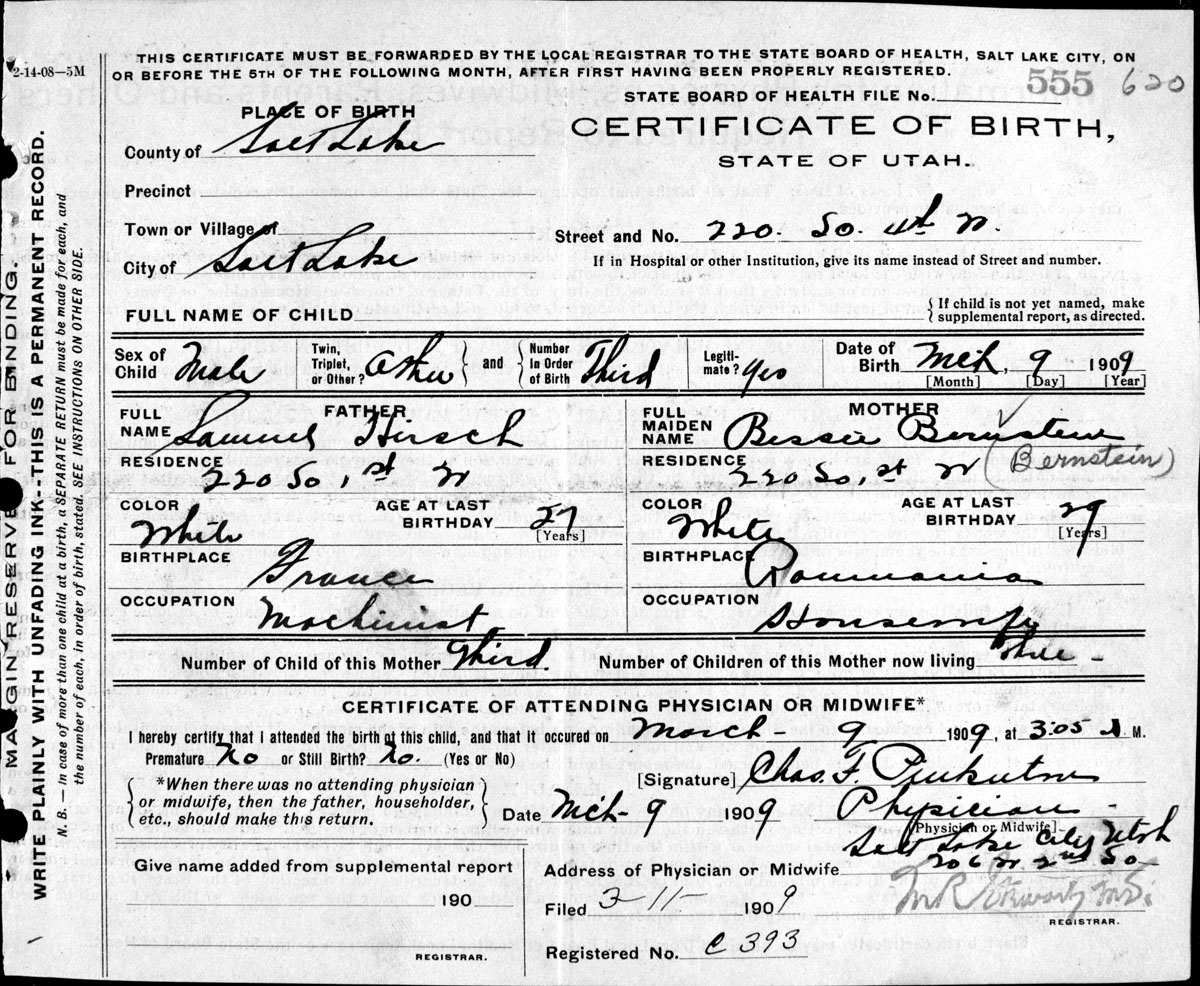 THIS CERTIFICATE MUST BE FORWARDED BY THE LOCAL REGISTRAR TO THE STATE BOARD OF HEALTH, SALT LAKE CITY, ON
2-14-08—5M
OR BEFORE THE 5TH OF THE FOLLOWING MONTH, AFTER FIRST HAVING BEEN PROPERLY REGISTERED.
STATE BOARD OF HEALTH FILE No. 555 620
PLACE OF BIRTH
CERTIFICATE OF BIRTH,
County of Salt Lake
STATE OF UTAH.
Precinct
Town or Village of
Street and No. 220. So. 4th W.
City of Salt Lake
If in Hospital or other Institution, give its name instead of Street and number.
FULL NAME OF CHILD
{ If child is not yet named, make
supplemental report, as directed.
Sex of Child Male
Twin, Triplet, or Other? Other } and { Number in Order of Birth Third
Legiti-mate? Yes
Date of Birth Mch, 9 1909
[Month] [Day] [Year]
FATHER
FULL NAME Samuel Hirsch
RESIDENCE
220 So 1st W
COLOR White
AGE AT LAST BIRTHDAY 27
[Years]
BIRTHPLACE
France
OCCUPATION
Machinist
MOTHER
FULL MAIDEN NAME Bessie Bernstein
(Bernstein)
RESIDENCE
220 So, 1st W
COLOR White
AGE AT LAST BIRTHDAY 29
[Years]
BIRTHPLACE
Roumania
OCCUPATION
Housewife
Number of Child of this Mother Third.
Number of Children of this Mother now living Three -
CERTIFICATE OF ATTENDING PHYSICIAN OR MIDWIFE*
I hereby certify that I attended the birth of this child, and that it occured on March - 9 1909, at 3:05 A M.
Premature No or Still Birth? No. (Yes or No)
*When there was no attending physician
or midwife, then the father, householder,
etc., should make this return.
[Signature] Chas. F. Pinkerton
Date Mch - 9 1909 Physician -
[Physician or Midwife]
Salt Lake City Utah
Address of Physician or Midwife 206 W. 2nd So
Give name added from supplemental report
190
REGISTRAR.
Filed 3-11- 1909
REGISTRAR.
Registered No. C 393
MARGIN RESERVE FOR BINDING.
WRITE PLAINLY WITH UNFADING INK--THIS IS A PERMANENT RECORD.
N. B. — In case of more than one child at a birth, a SEPARATE RETURN must be made for each, and
the number of each, in order of birth, stated. SEE INSTRUCTIONS ON OTHER SIDE.